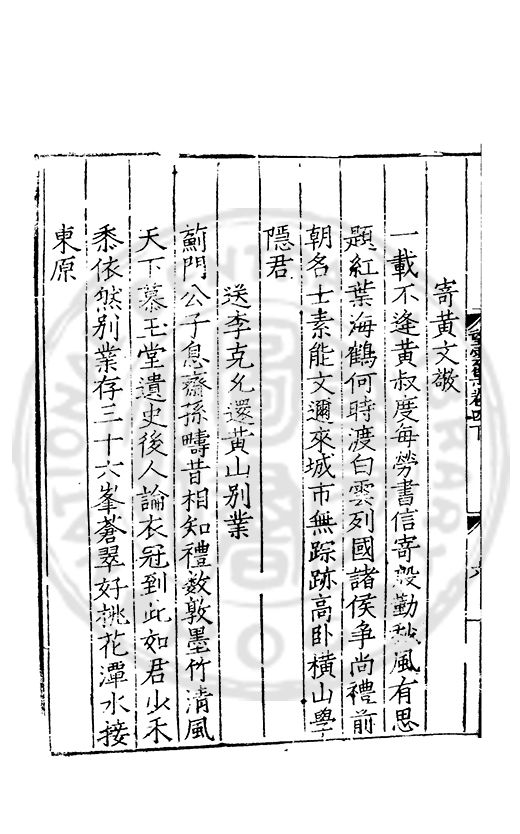 寄黃文敬
一載不逢黃叔度每勞書信寄殷勤秋風有思
題紅葉海鶴何時渡白雲列國諸侯爭尚禮前
朝名士素能文邇來城市無踪跡高卧橫山學
隱君
送李克允還黃山別業
薊門公子息齋孫疇昔相知禮数敦墨竹清風
天下慕玉堂遺史後人論衣冠到此如君少禾
黍依然別業存三十六峯蒼翠好桃花潭水接
東原
卷四下
六